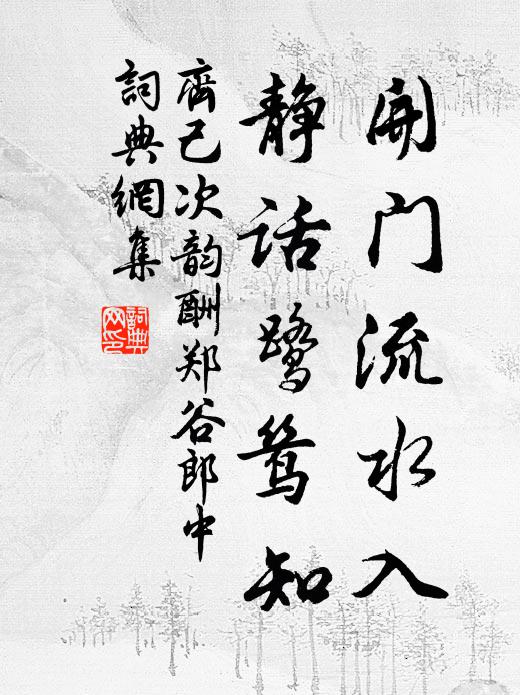 開门流水入
静话鹭鸶知
齊己次韵酬郑谷郎中
詞典網集
詞典网印